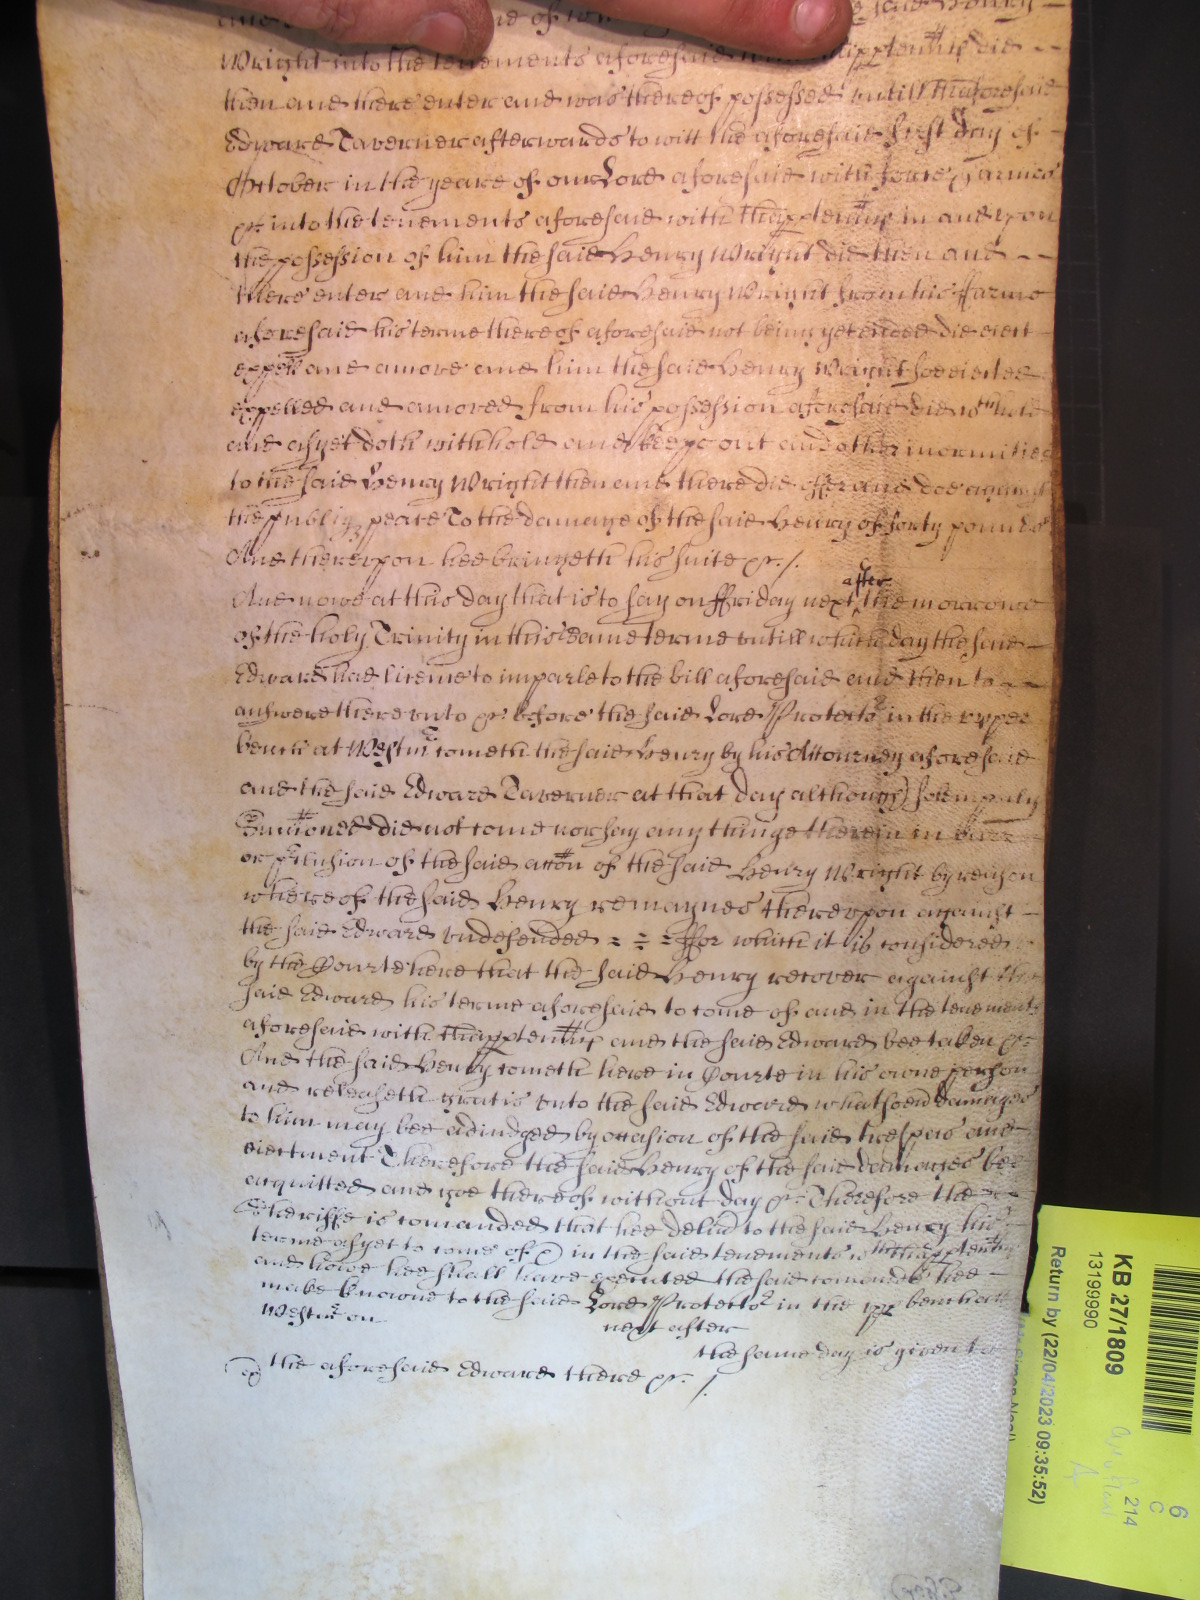 Wright into the tenements aforesaid did
then and there enter and was thereof possessed untill the aforesaid
Edward Taverner afterwards to witt the aforesaid first day of
October in the yeare of our Lord aforesaid with force & armes
&c into the tenements aforesaid with thapptenncs in and upon
the possession of him the said Henry Wright did then and
there enter and him the said Henry Wright from his ffarme
aforesaid his terme thereof aforesaid not being yet ended did eiect
expell and amove and him the said Henry Wright soe eiected
expelled and amoved from his possession aforesaid did wthhold
and as yet doth withhold and keepe out and other inormities
to the said Henry Wright then and there did offer and doe against
the publiq peace To the damage of the said Henry of forty pounds
And thereupon hee bringeth his suite &c. /.
And nowe at this day that is to say on ffriday next after the morrowe
of the holy Trinity in this same terme untill which day the said
Edward had licence to imparle to the bill aforesaid and then to
answere thereunto &c before the said Lord Protector in the upper
bench at Westmr cometh the said Henry by his Attourney aforesaid
and the said Edward Taverner at that day although solempnly
Sumoned did not come nor say any thinge therein in barr
or pclusion of the said accon of the said Henry Wright by reason
whereof the said Henry remaynes thereupon against
the said Edward undefended ffor which it is considered
by the Courte here that the said Henry recover against the
said Edward his terme aforesaid to come of and in the tenements
aforesaid with thapptenncs and the said Edward bee taken &c
And the said Henry cometh here in Courte in his owne person
and releaseth gratis unto the said Edward whatsoevr damages
to him may bee adiudged by occasion of the said trespas and
eiectment Therefore the said Henry of the said damages bee
acquitted and goe thereof without day &c Therefore the
Sheriffe is comanded that hee delivr to the said Henry his
terme as yet to come of & in the said tenements wth thapptenncs
and howe hee shall have executed the said comande hee
make knowne to the said Lord Protector in the upp bench att
Westmr on
next after
the same day is given to
the aforesaid Edward there &c. /.
KB 27/1809
13199990
Return by (22/04/2023 09:35:52)
6
C
214
A